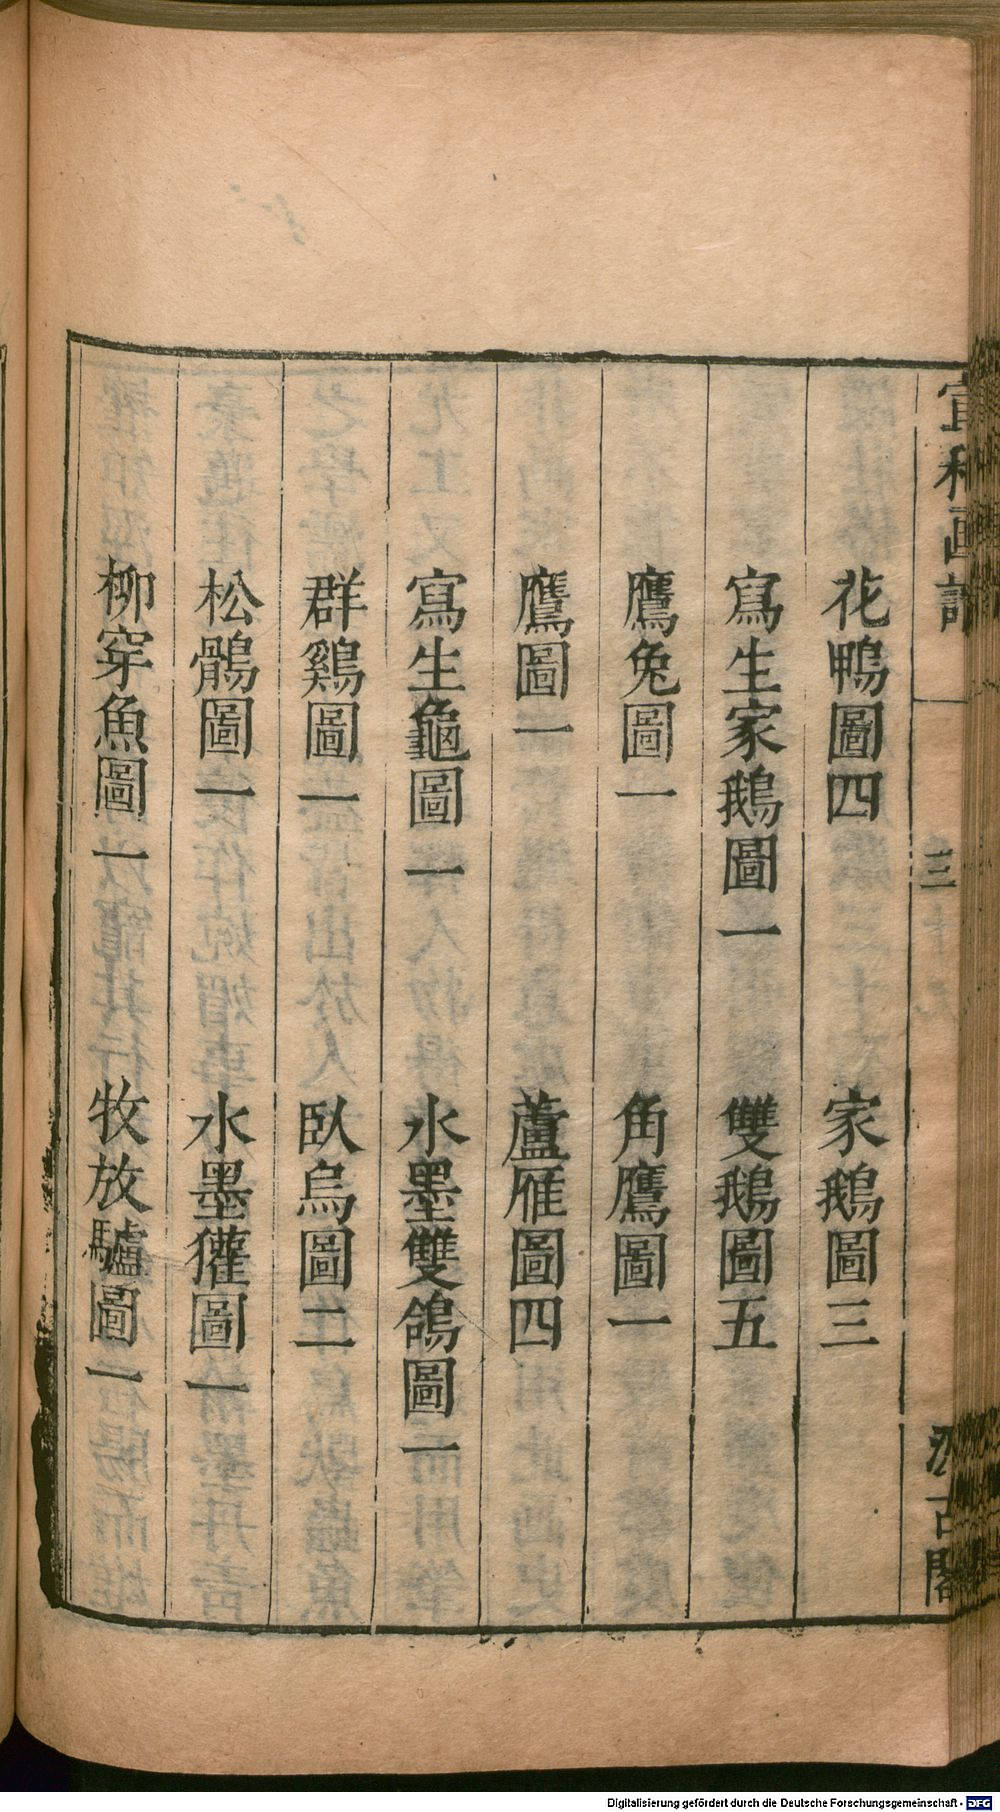 宣和画譜
三
汲古閣
花鴨圖四 家鵝圖三
寫生家鵝圖一 雙鵝圖五
鷹兔圖一 角鷹圖一
鷹圖一 蘆雁圖四
寫生龜圖一 水墨雙鴿圖一
群鷄圖一 臥烏圖二
松鶻圖一 水墨獾圖一
柳穿魚圖一 牧放驢圖一
Digitalisierung gefördert durch die Deutsche Forschungsgemeinschaft - DFG